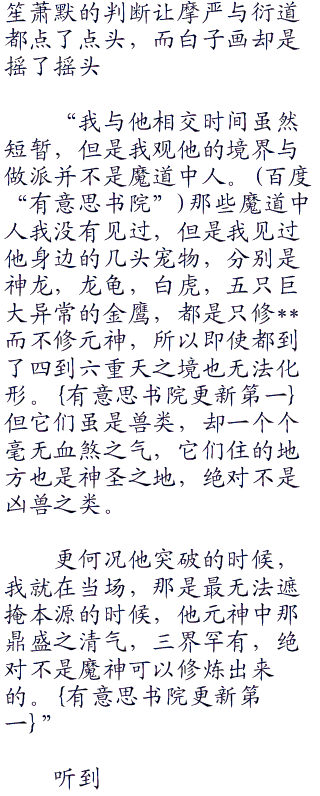 笙萧默的判断让摩严与衍道
都点了点头，而白子画却是
摇了摇头
“我与他相交时间虽然
短暂，但是我观他的境界与
做派并不是魔道中人。(百度
“有意思书院”)那些魔道中
人我没有见过，但是我见过
他身边的几头宠物，分别是
神龙，龙龟，白虎，五只巨
大异常的金鹰，都是只修**
而不修元神，所以即使都到
了四到六重天之境也无法化
形。{有意思书院更新第一}
但它们虽是兽类，却一个个
毫无血煞之气，它们住的地
方也是神圣之地，绝对不是
凶兽之类。
更何况他突破的时候，
我就在当场，那是最无法遮
掩本源的时候，他元神中那
鼎盛之清气，三界罕有，绝
对不是魔神可以修炼出来
的。{有意思书院更新第
一}”
听到